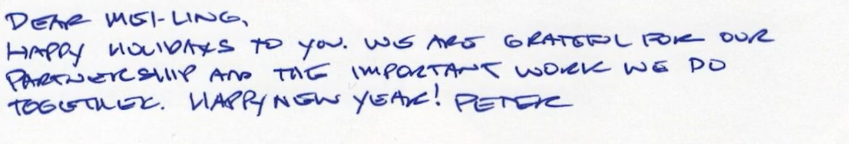 DEAR MEI-LING,
HAPPY HOLIDAYS TO YOU. WE ARE GRATEFUL FOR OUR
PARTNERSHIP AND THE IMPORTANT WORK WE DO
TOGETHER. HAPPY NEW YEAR! PETER